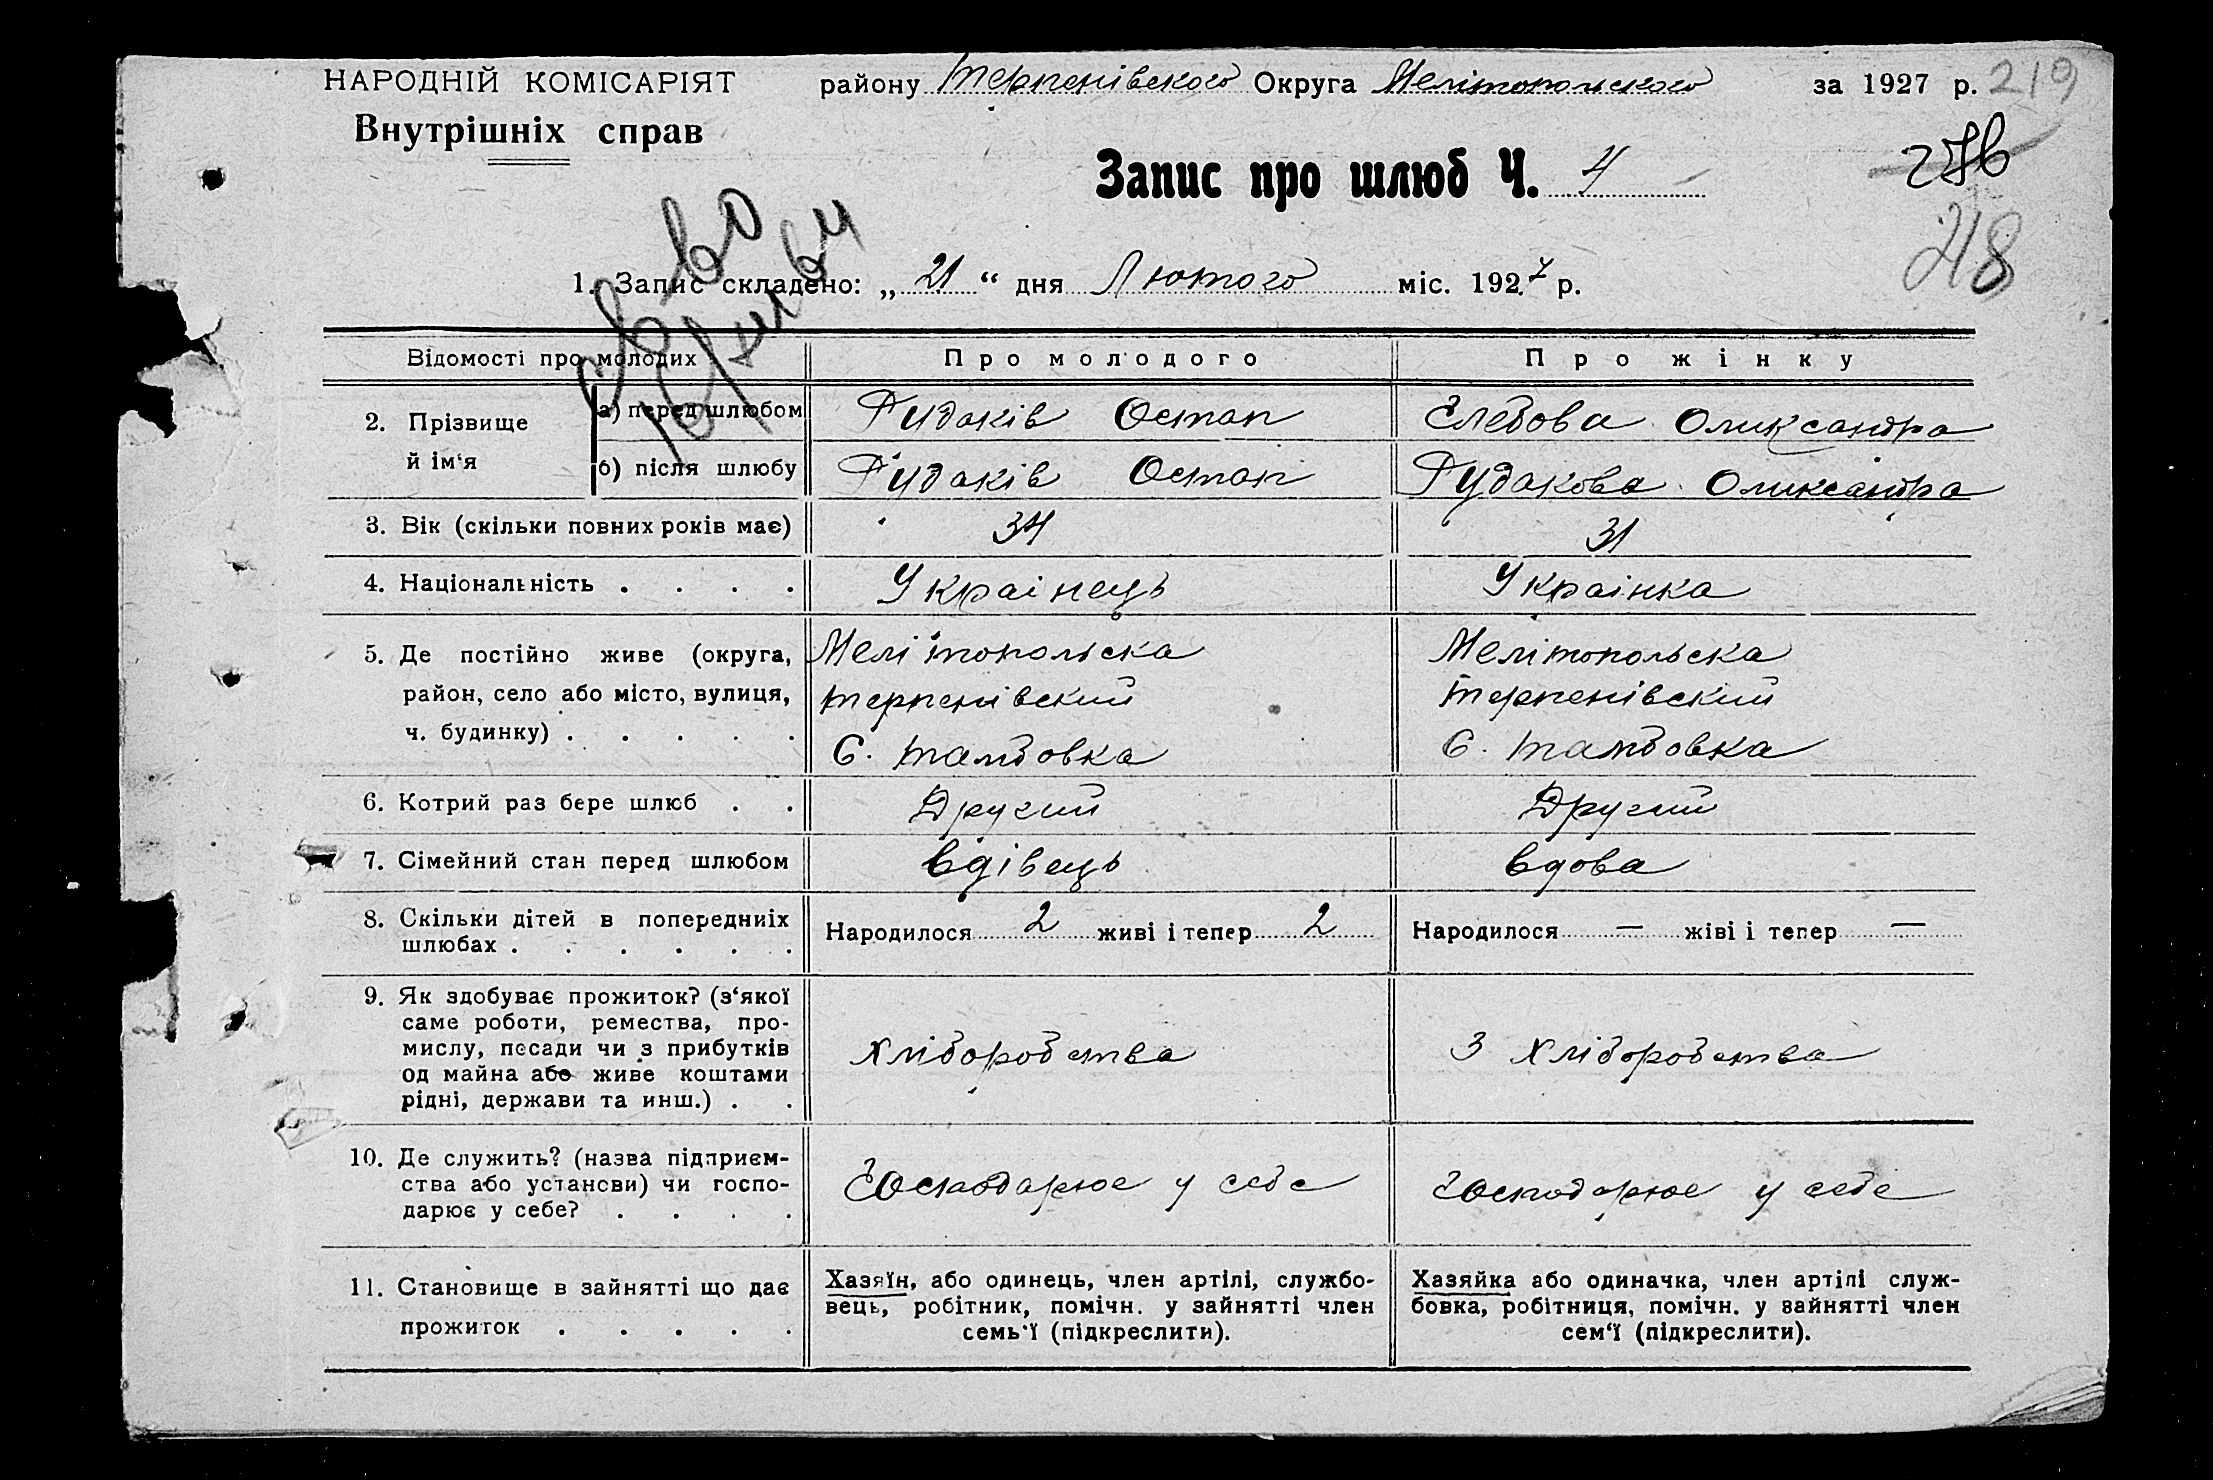 НАРОДНІЙ КОМІСАРІЯТ району Терпенівского Округа Мелітопольского за 1927 р. 219
Внутрішніх справ
Запис про шлюб Ч. 4
218
1. Запис складено: „21“ дня Лютого міс. 1927 р.
Відомості про молодих Про молодого Про жінку
2. Прізвище й ім‘я а) перед шлюбом Рудаків Остап Олександра
б) після шлюбу Рудаків Остап Рудакова Олександра
3. Вік (скільки повних років має) 34 31
4. Національність . . . . Украінець Украінка
5. Де постійно живе (округа, Мелітопольска Мелітопольска
район, село або місто, вулиця, терпенівский терпенівский
ч. будинку) . . . . . С. тамбовка С. тамбовка
6. Котрий раз бере шлюб . . Другий Другий
7. Сімейний стан перед шлюбом вдівець вдова
8. Скільки дітей в попередниіх Народилося 2 живі і тепер 2 Народилося — жіві і тепер —
шлюбах . . . . . .
9. Як здобуває прожиток? (з‘якої
саме роботи,ремества, про-
мислу, посади чи з прибутків хліборобства З хліборобства
од майна або живе коштами
рідні, держави та инш.) . .
10. Де служить? (назва підприєм-
ства або установи) чи госпо- Господарюе у себе господарюе у себе
дарює у себе? . . . .
11. Становище в зайнятті що дає Хазяїн, або одинець, член артілі, службо- Хазяйка або одиначка, член артілі служ-
вець, робітник, помічн. у зайнятті член бовка, робітниця, помічн. у зайнятті член
прожиток . . . . . семь‘ї (підкреслити). сем‘ї (підкреслити).